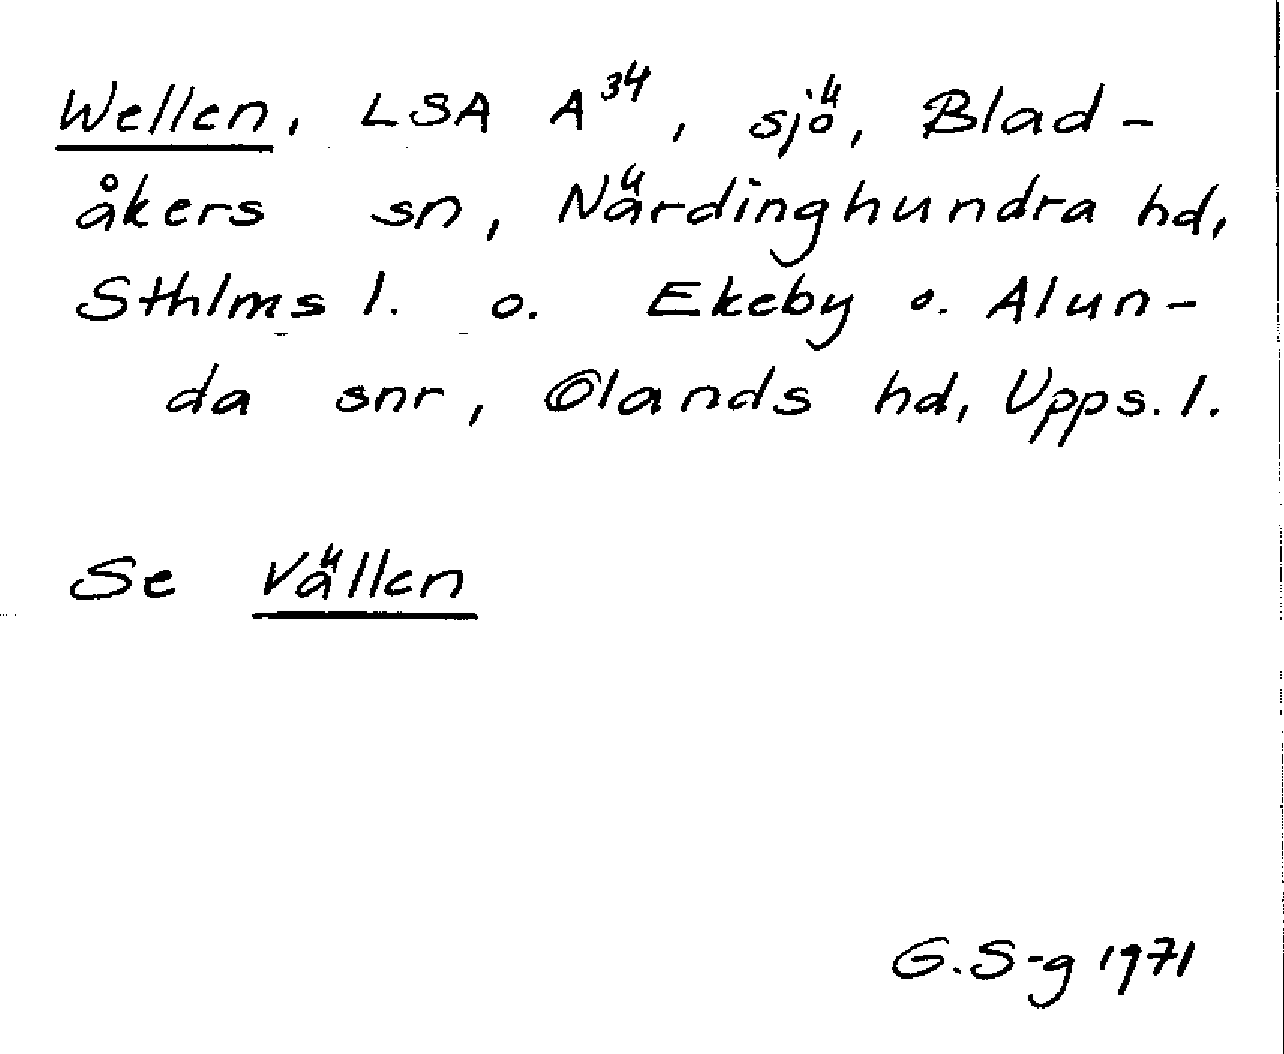 Wellen, LSA A³⁴, sjö, Blad-
åkers sn, Närdinghundra hd,
Sthlms l. o. Ekeby o. Alun-
da snr, Olands hd, Upps. l.
Se Vällen
G.S-g 1971